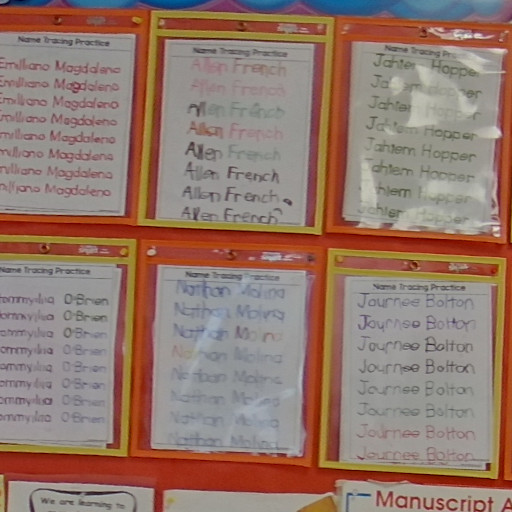 Name Tracing Practice
Emiliano Magdaleno
Emiliano Magdaleno
Emiliano Magdaleno
Emiliano Magdaleno
Emiliano Magdaleno
miliano Magdaleno
miliano Magdaleno
miliano Magdaleno
Name Tracing Practice
Allen French
Allen French
Allen French
Allen French
Allen French
Allen French
Allen French
Allen French
Name Tracing Practice
Jahiem Hopper
Jahiem Hopper
Jahiem Hopper
Jahiem Hopper
Jahiem Hopper
Jahiem Hopper
Jahiem Hopper
Jahiem Hopper
Name Tracing Practice
O'Brien
O'Brien
O'Brien
O'Brien
O'Brien
O'Brien
O'Brien
O'Brien
Name Tracing Practice
Nathan Molina
Nathan Molina
Nathan Molina
Nathan Molina
Nathan Molina
Nathan Molina
Nathan Molina
Nathan Molina
Name Tracing Practice
Journee Bolton
Journee Bolton
Journee Bolton
Journee Bolton
Journee Bolton
Journee Bolton
Journee Bolton
Journee Bolton
We are learning to
Manuscript A